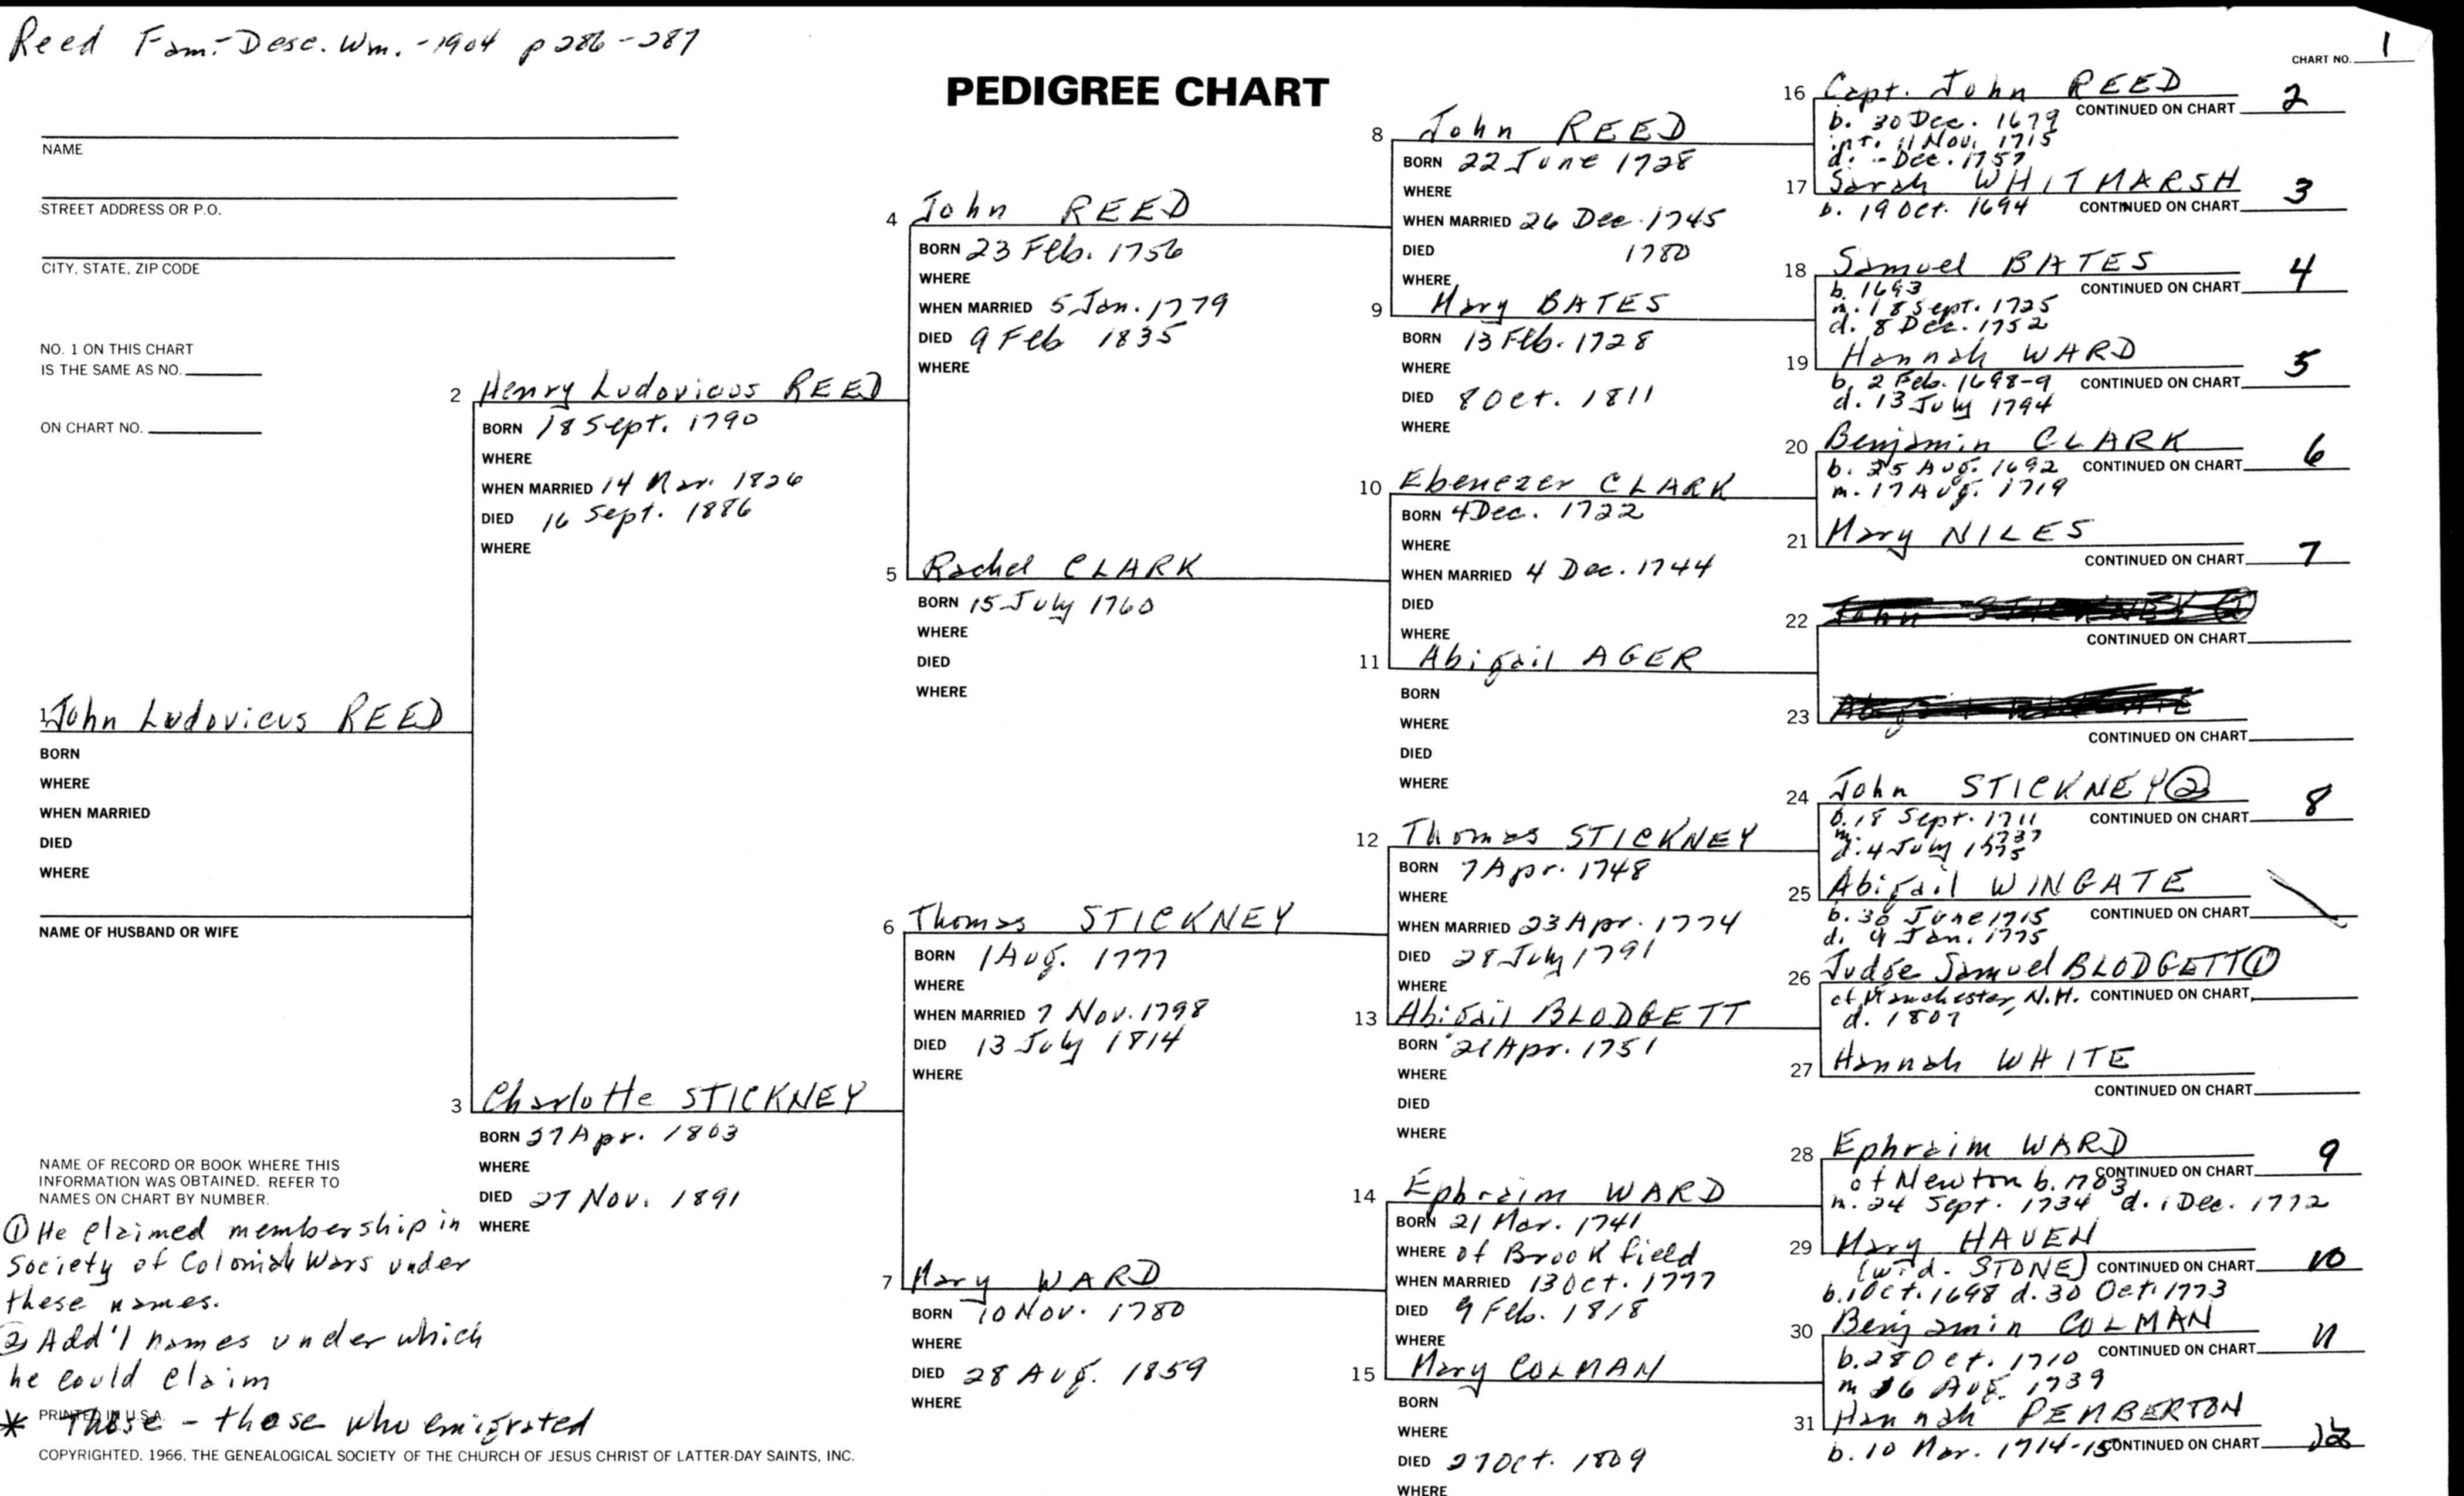 Reed Fam.- Desc. Wm. -1904 p 286-287
CHART NO. 1
PEDIGREE CHART
NAME
STREET ADDRESS OR P.O.
CITY, STATE, ZIP CODE
NO. 1 ON THIS CHART
IS THE SAME AS NO.
ON CHART NO.
1 John Ludovicus REED
BORN
WHERE
WHEN MARRIED
DIED
WHERE
NAME OF HUSBAND OR WIFE
2 Henry Ludovicus REED
BORN 18 Sept. 1790
WHERE
WHEN MARRIED 14 Mar. 1826
DIED 16 Sept. 1886
WHERE
3 Charlotte STICKNEY
BORN 27 Apr. 1803
WHERE
DIED 27 Nov. 1891
WHERE
4 John REED
BORN 23 Feb. 1756
WHERE
WHEN MARRIED 5 Jan. 1779
DIED 9 Feb 1835
WHERE
5 Rachel CLARK
BORN 15 July 1760
WHERE
DIED
WHERE
6 Thomas STICKNEY
BORN 1 Aug. 1777
WHERE
WHEN MARRIED 7 Nov. 1798
DIED 13 July 1814
WHERE
7 Mary WARD
BORN 10 Nov. 1780
WHERE
DIED 28 Aug. 1859
WHERE
8 John REED
BORN 22 June 1728
WHERE
WHEN MARRIED 26 Dec. 1745
DIED 1780
WHERE
9 Mary BATES
BORN 13 Feb. 1728
WHERE
DIED 8 Oct. 1811
WHERE
10 Ebenezer CLARK
BORN 4 Dec. 1722
WHERE
WHEN MARRIED 4 Dec. 1744
DIED
WHERE
11 Abigail AGER
BORN
WHERE
DIED
WHERE
12 Thomas STICKNEY
BORN 7 Apr. 1748
WHERE
WHEN MARRIED 23 Apr. 1774
DIED 28 July 1791
WHERE
13 Abigail BLODGETT
BORN 21 Apr. 1751
WHERE
DIED
WHERE
14 Ephraim WARD
BORN 21 Mar. 1741
WHERE of Brookfield
WHEN MARRIED 13 Oct. 1777
DIED 9 Feb. 1818
WHERE
15 Mary COLMAN
BORN
WHERE
DIED 27 Oct. 1809
WHERE
16 Capt. John REED
CONTINUED ON CHART 2
b. 30 Dec. 1679
int. 11 Nov. 1715
d. - Dec. 1757
17 Sarah WHITMARSH
b. 19 Oct. 1694 CONTINUED ON CHART 3
18 Samuel BATES
b. 1693 CONTINUED ON CHART 4
m. 18 Sept. 1725
d. 8 Dec. 1752
19 Hannah WARD
b. 2 Feb. 1698-9 CONTINUED ON CHART 5
d. 13 July 1794
20 Benjamin CLARK
b. 25 Aug. 1692 CONTINUED ON CHART 6
m. 17 Aug. 1719
21 Mary NILES
CONTINUED ON CHART 7
22
CONTINUED ON CHART
23
CONTINUED ON CHART
24 John STICKNEY ②
b. 18 Sept. 1711 CONTINUED ON CHART 8
m. 1737
d. 4 July 1775
25 Abigail WINGATE
b. 30 June 1715 CONTINUED ON CHART
d. 9 Jan. 1775
26 Judge Samuel BLODGETT ①
of Manchester, N.H. CONTINUED ON CHART
d. 1807
27 Hannah WHITE
CONTINUED ON CHART
28 Ephraim WARD
of Newton b. 1703 CONTINUED ON CHART 9
m. 24 Sept. 1734 d. 1 Dec. 1772
29 Mary HAVEN
(wid. STONE) CONTINUED ON CHART 10
b. 1 Oct. 1698 d. 30 Oct. 1773
30 Benjamin COLMAN
b. 28 Oct. 1710 CONTINUED ON CHART 11
m 16 Aug. 1739
31 Hannah PEMBERTON
b. 10 Mar. 1714-15 CONTINUED ON CHART 12
NAME OF RECORD OR BOOK WHERE THIS
INFORMATION WAS OBTAINED. REFER TO
NAMES ON CHART BY NUMBER.
① He claimed membership in
Society of Colonial Wars under
these names.
② Add'l names under which
he could claim
* Those - those who emigrated
PRINTED IN U.S.A.
COPYRIGHTED, 1966, THE GENEALOGICAL SOCIETY OF THE CHURCH OF JESUS CHRIST OF LATTER-DAY SAINTS, INC.